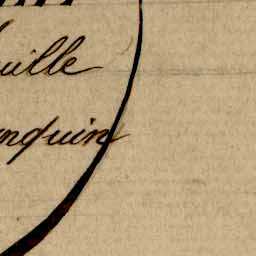 uille
nquin